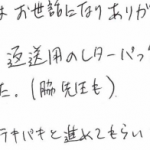 はお世話になりありが
返送用のレターパッ
た。(脇先生も)
テキパキと進めてもらい